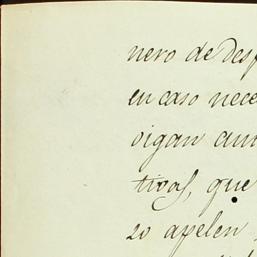 nero de Desp
en caso nece
oigan aun
tivas, que
zo apelen